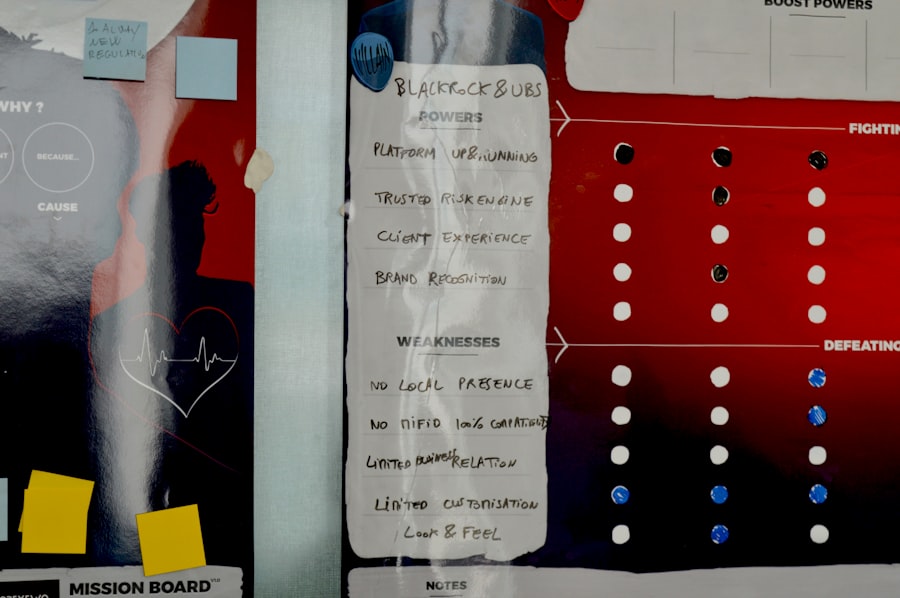 NEW
WHY ?
BECAUSE...
CAUSE
MISSION BOARD
VILLAIN
BLACKROCK & UBS
POWERS
PLATFORM UP&RUNNING
TRUSTED RISK ENGINE
CLIENT EXPERIENCE
BRAND RECOGNITION
WEAKNESSES
NO LOCAL PRESENCE
NO MIFID 100% COMPATIBLE
LIMITED BUSINESS RELATION
LIMITED CUSTOMISATION
LOOK & FEEL
NOTES
BOOST POWERS
FIGHTIN
DEFEATING